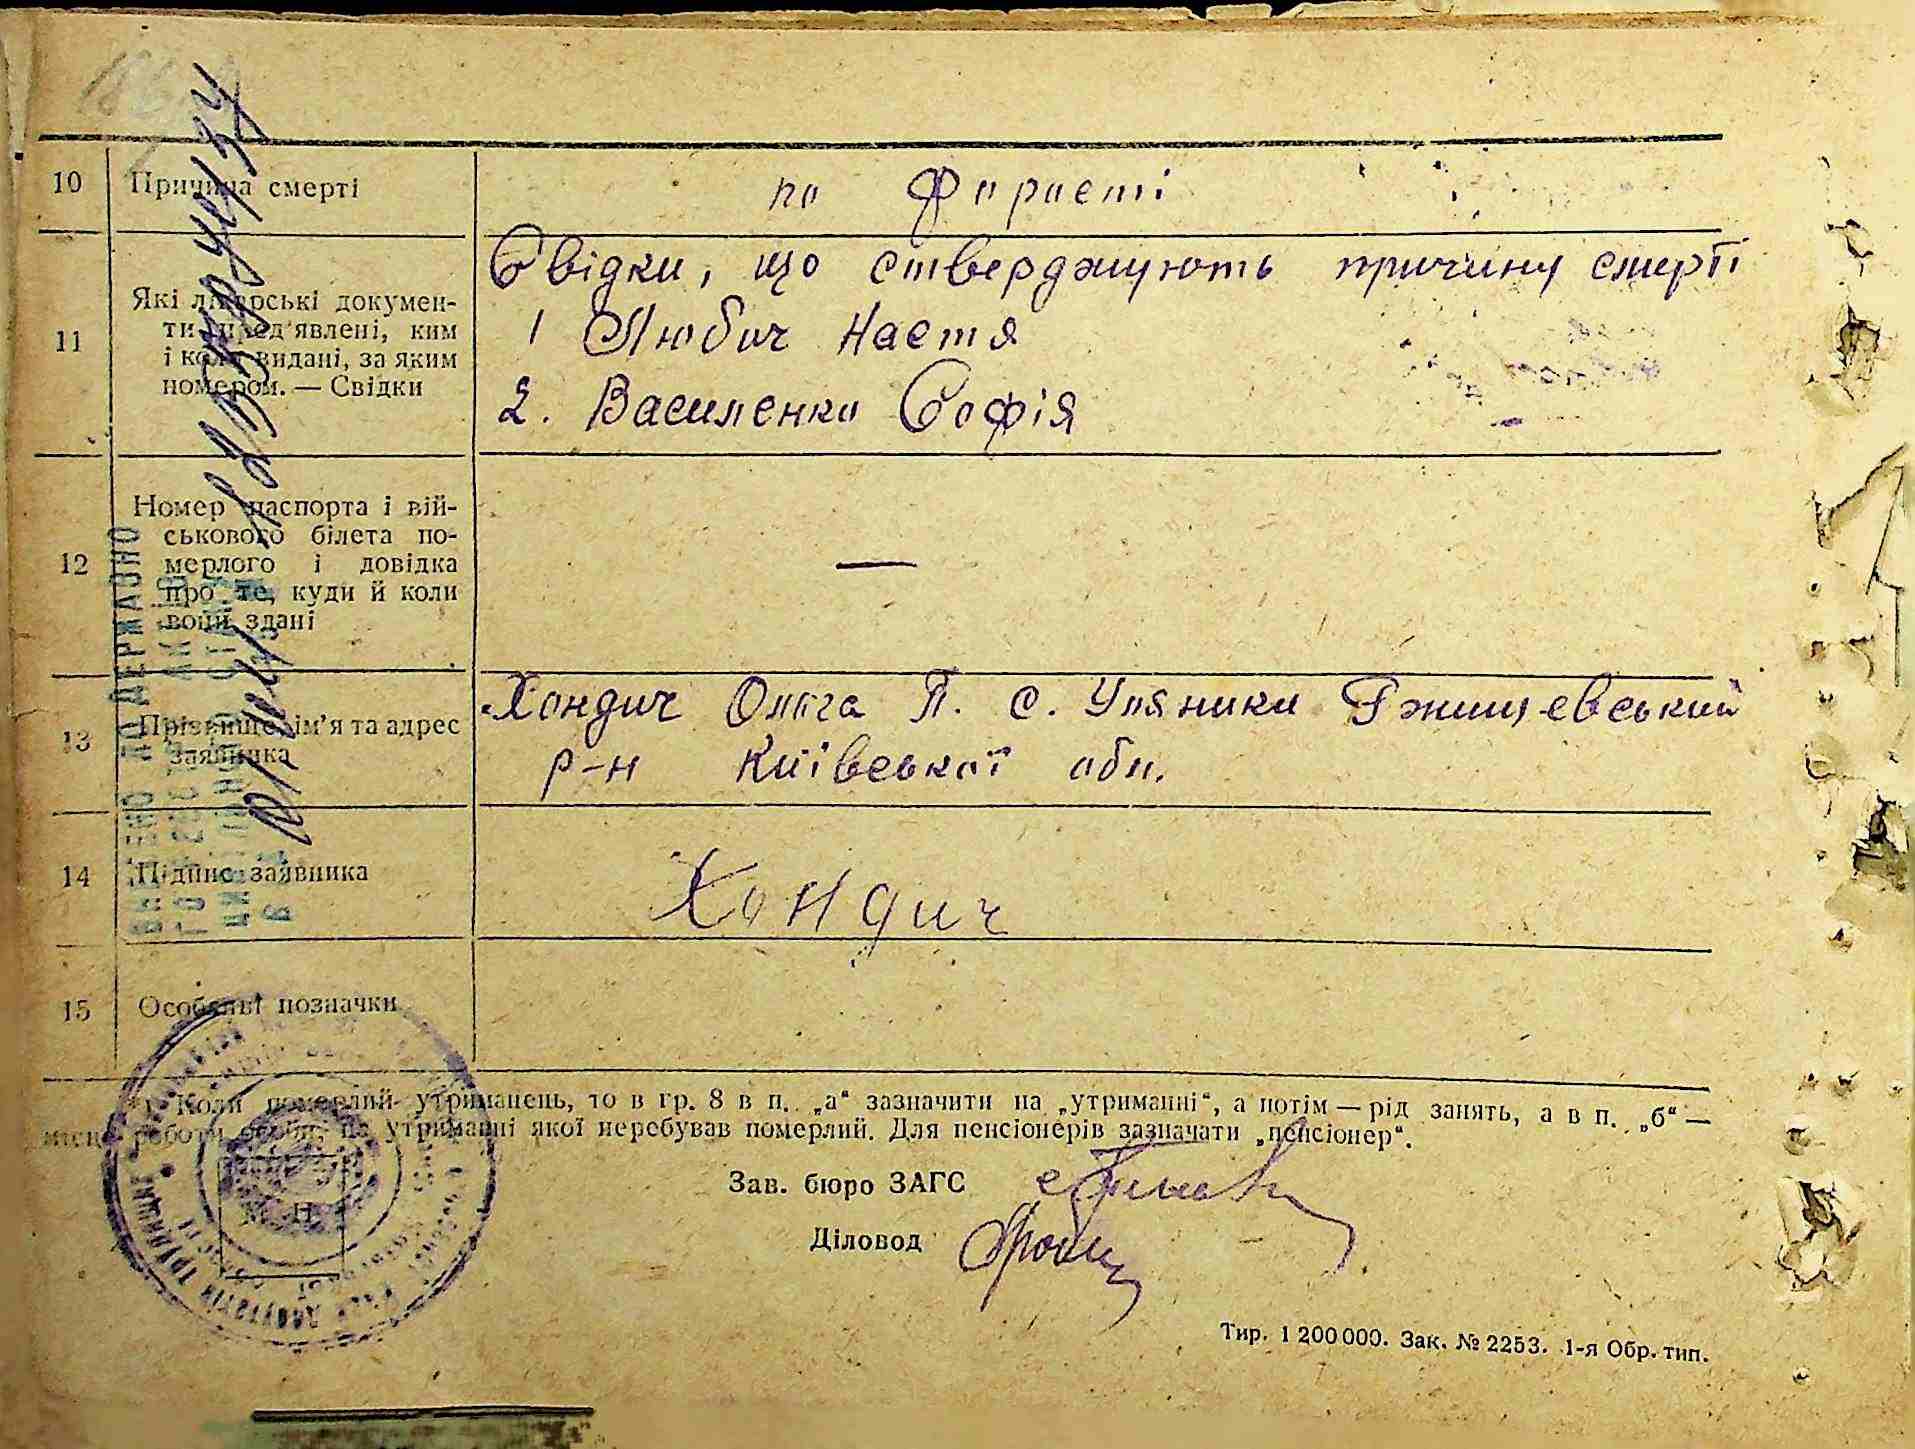 10 Причина смерті
по старості
11 Які лікарські докумен-
ти пред'явлені, ким
і коли видані, за яким
номером. — Свідки
Свідки, що стверджують причину смерті
1 Любич Настя
2. Василенко Софія
12 Номер паспорта і вій-
ськового білета по-
мерлого і довідка
про те, куди й коли
вони здані
—
13 Прізвище, ім'я та адрес
заявника
Хондич Ольга П. с. Уляники Ржищевський
р-н Київської обл.
14 Підпис заявника
Хондич
15 Особливі позначки
*) Коли померлий утриманець, то в гр. 8 в п. „а“ зазначити на „утриманні“, а потім — рід занять, а в п. „б“ —
місце роботи особи, на утриманні якої перебував померлий. Для пенсіонерів зазначати „пенсіонер“.
Зав. бюро ЗАГС
Діловод
Тир. 1 200 000. Зак. № 2253. 1-я Обр. тип.